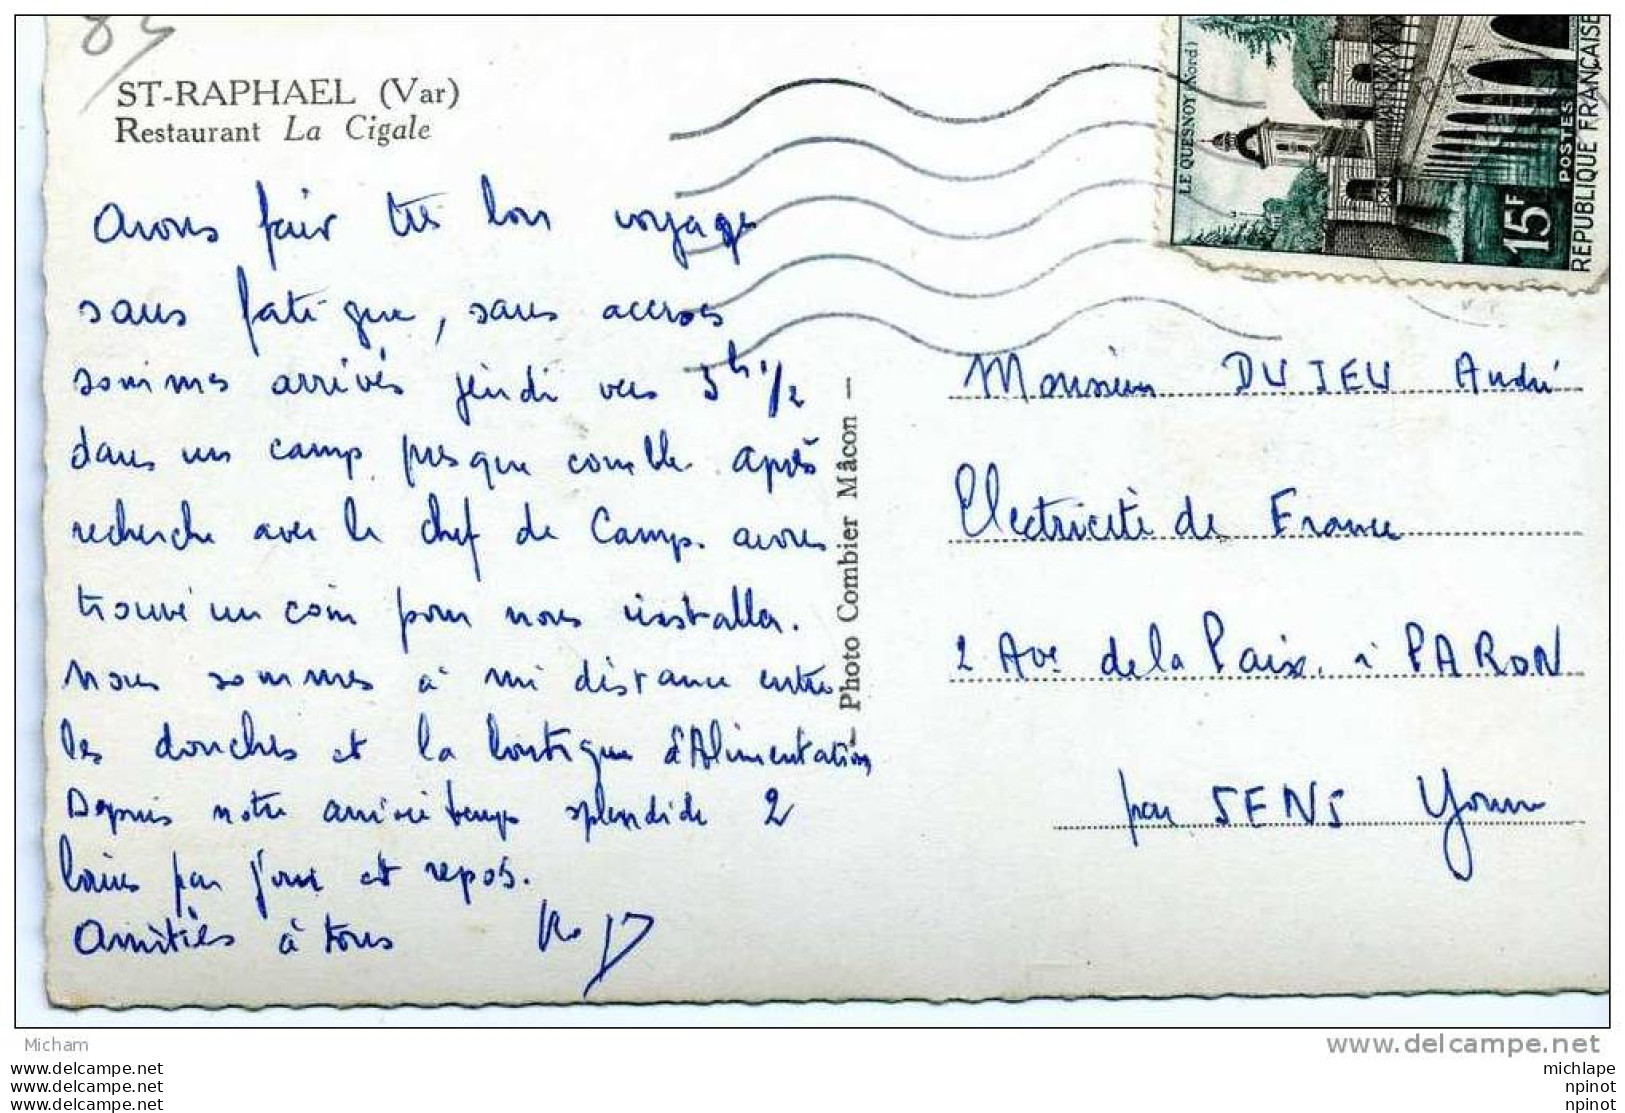 ST-RAPHAEL (Var)
Restaurant La Cigale
Avons fair très bon voyage
sans fatigue, sans accros
sommes arrivés jeudi vers 5h 1/2
dans un camp presque comble après
recherche avec le chef de Camp. avons
trouvé un coin pour nous installer.
Nous sommes à mi distance entre
les douches et la boutique d'Alimentation
Depuis notre arrivée temps splendide 2
bains par jour et repos.
Amitiés à tous
— Photo Combier Mâcon —
LE QUESNOY (Nord)
15F
POSTES
REPUBLIQUE FRANÇAISE
Monsieur DUJEU André
Electricité de France
2 Ave de la Paix. à PARON
par SENS Yonne
Micham
www.delcampe.net
www.delcampe.net
www.delcampe.net
www.delcampe.net
michlape
npinot
npinot